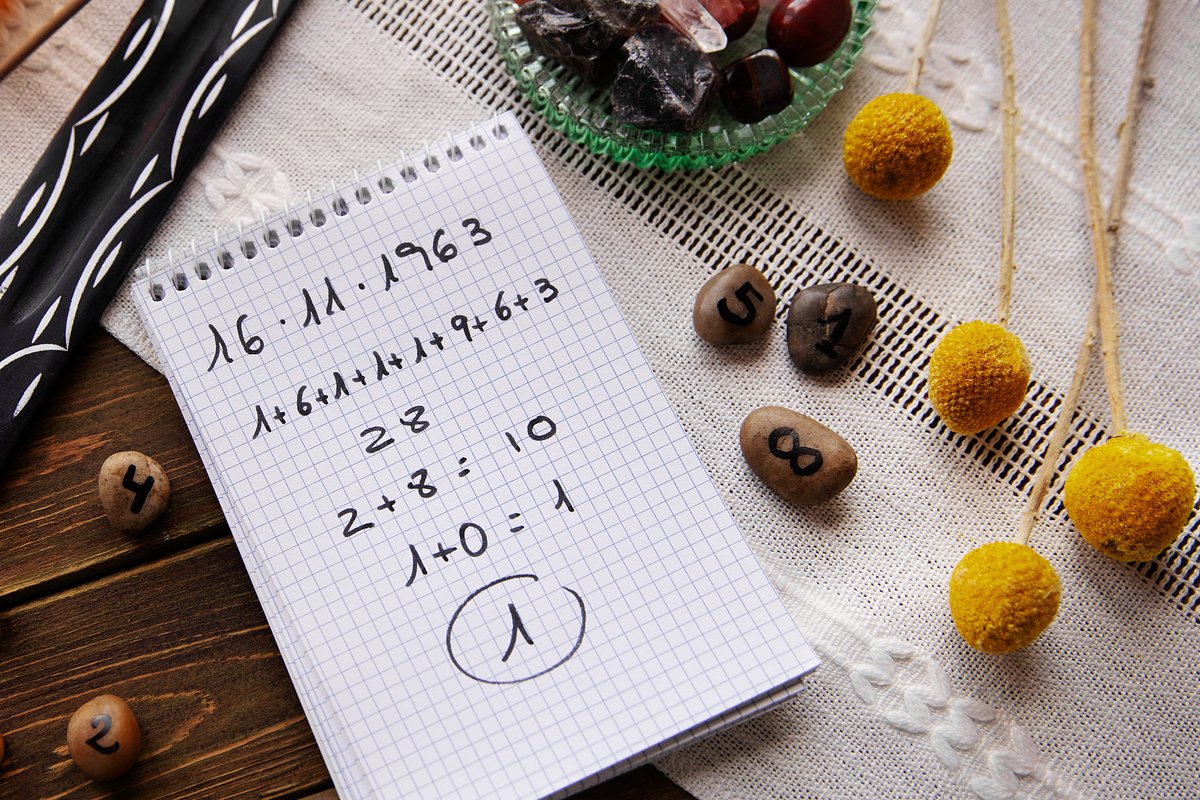 16.11.1963
1+6+1+1+1+9+6+3
28
2+8= 10
1+0 = 1
1
5
1
8
4
2